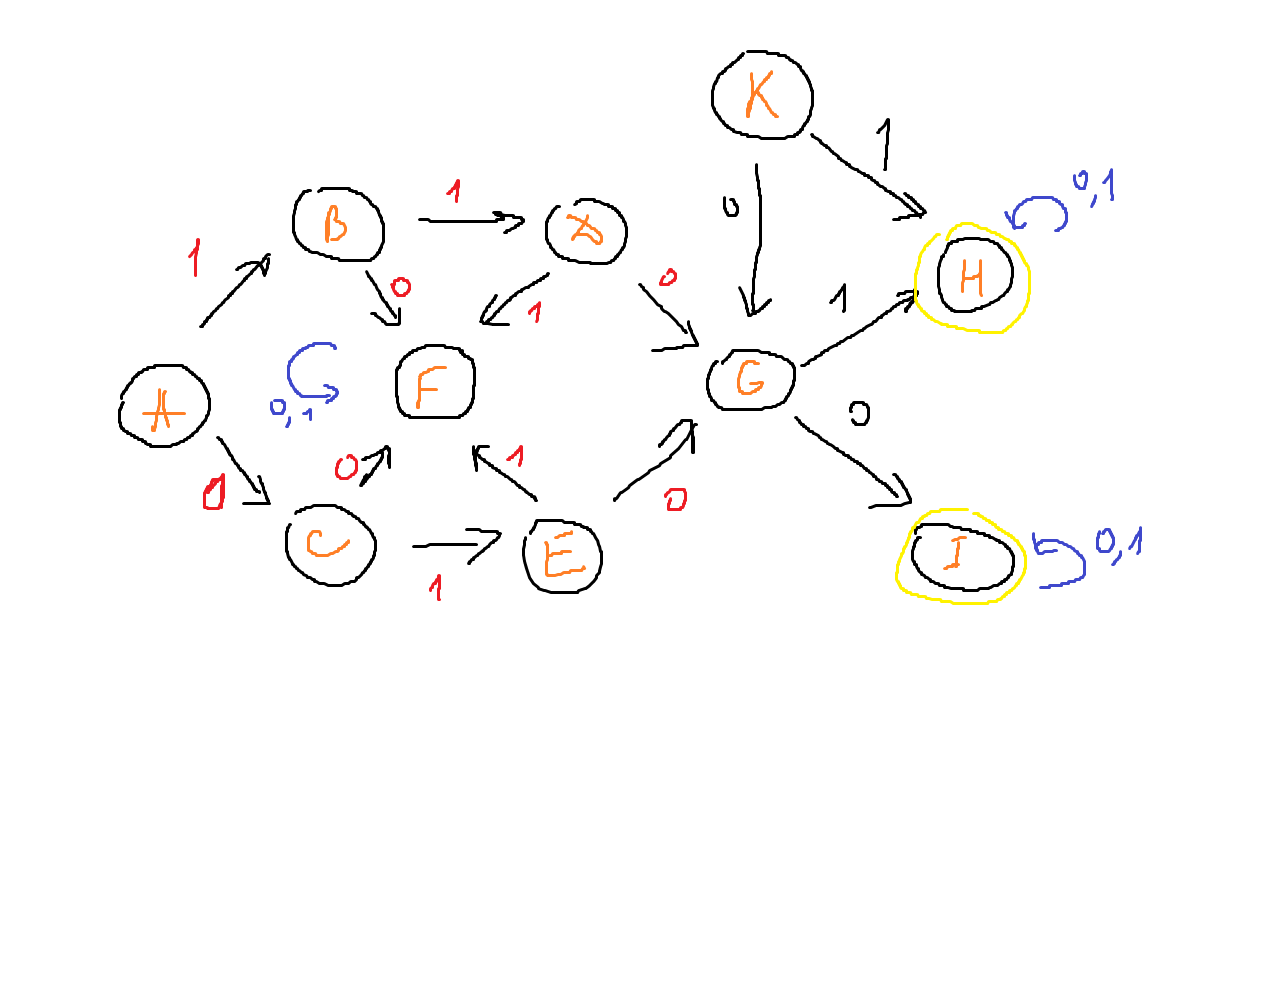 K
1
0,1
1
B
1
D
0
H
0
0
1
1
A
0,1
F
G
0
0
0
1
0
C
1
E
I
0,1